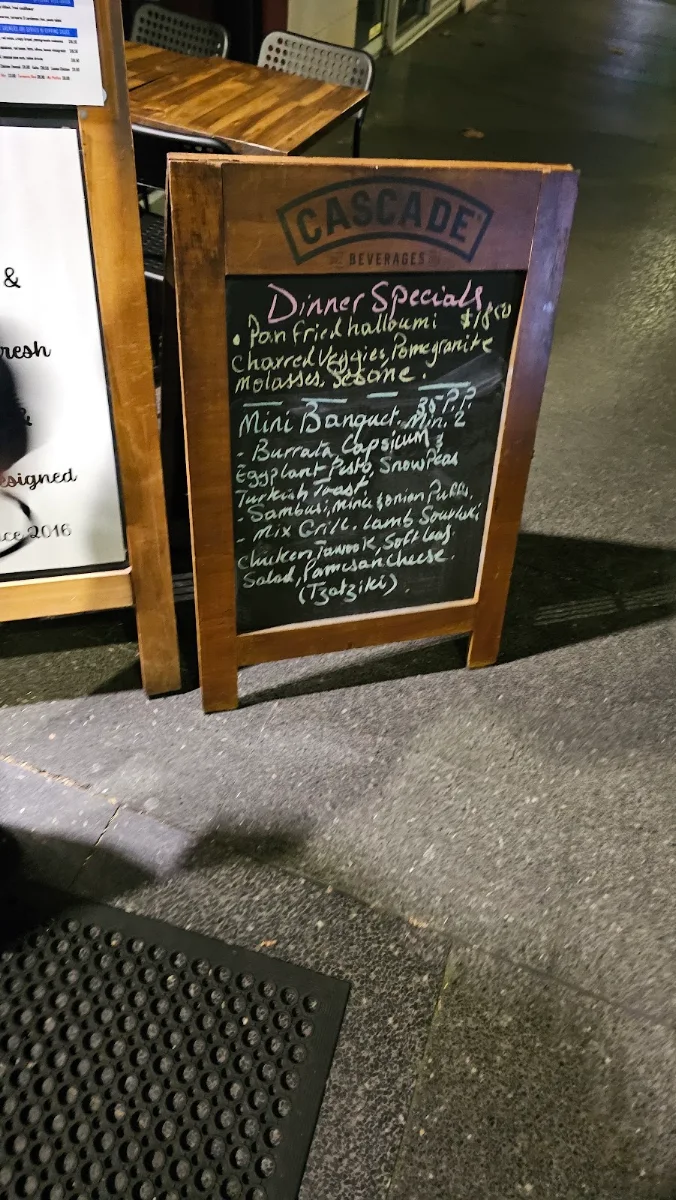 &
resh
&
esigned
ce 2016
CASCADE
BEVERAGES
Dinner Specials
• Pan fried halloumi $18.50
Charred Veggies, Pomegranite
Molasses, Sesame.
Mini Banquet. 35 P.P.
Min. 2
- Burrata, Capsicum &
Eggplant Pesto, Snow Peas
Turkish Toast
- Sambusi, mince & onion Puffs,
- Mix Grill. Lamb Souvlaki
Chicken Tawook, Soft leaf
Salad, Parmisan cheese.
(Tzatziki).